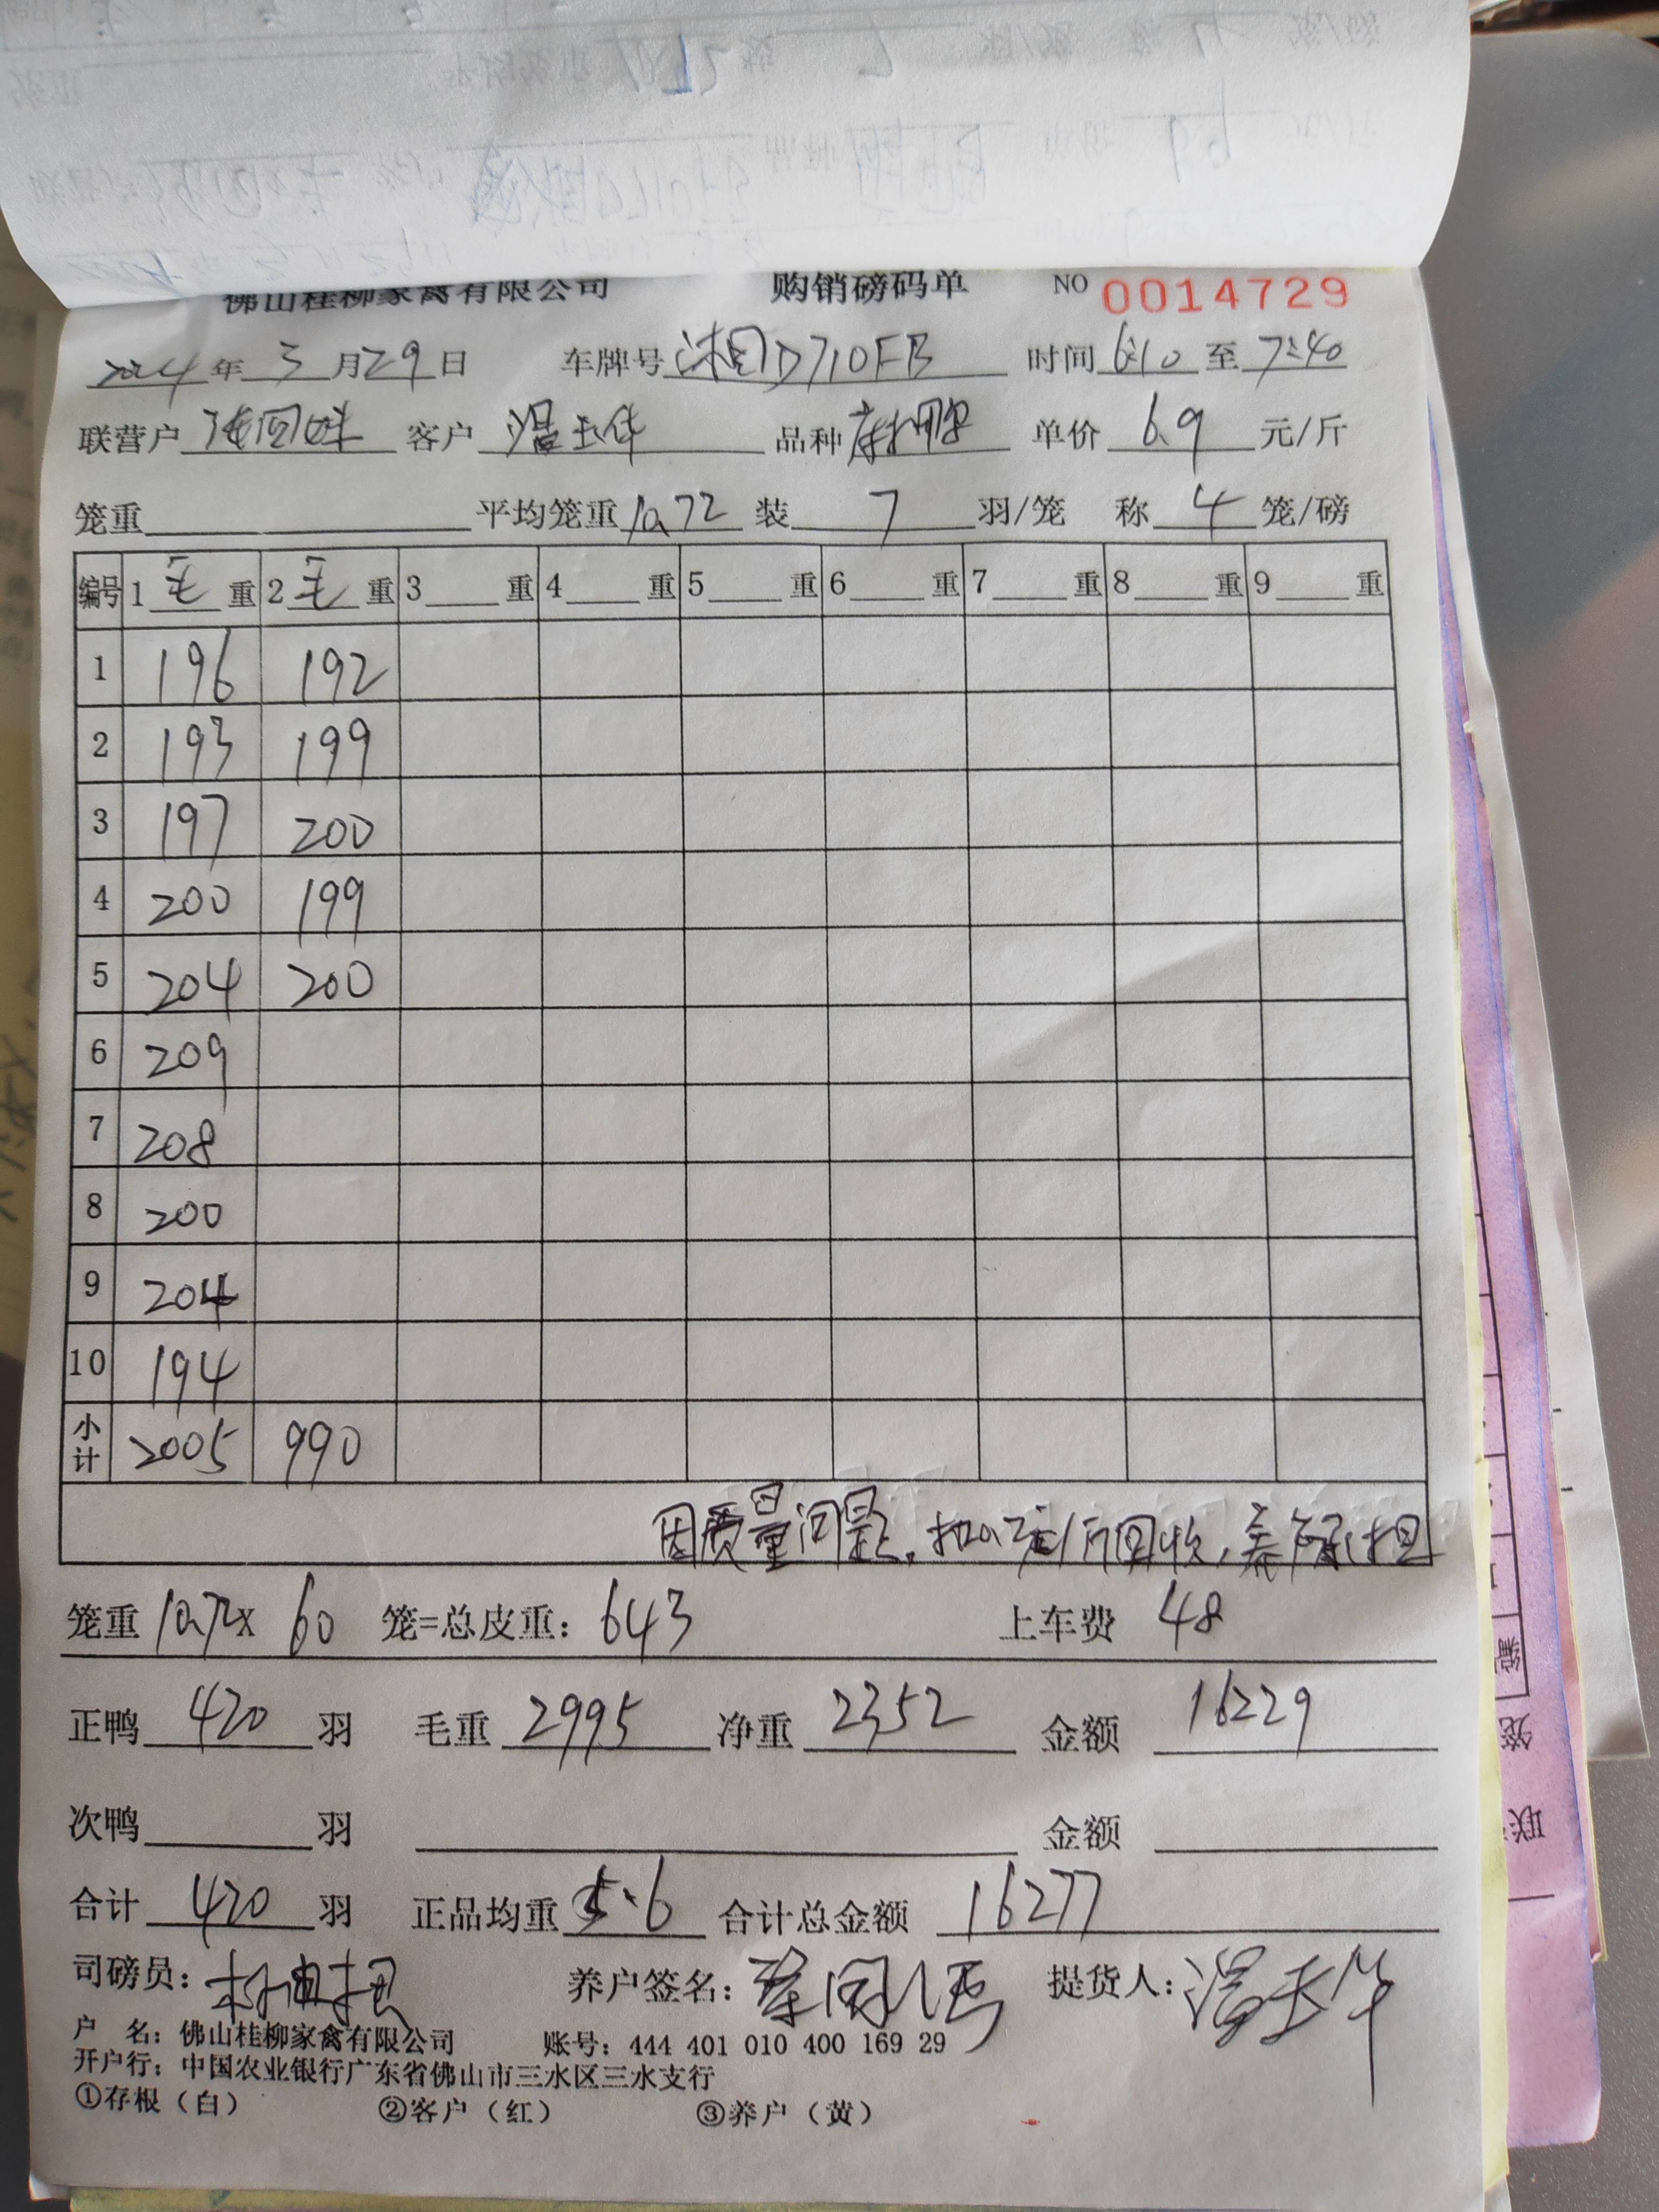 佛山桂柳家禽有限公司 购销磅码单 NO 0014729
2024年3月29日 车牌号 湘D710FB 时间 6:10 至 7:40
联营户 客户 温玉华 品种 麻鸭 单价 6.9 元/斤
笼重 平均笼重 10.72 装 7 羽/笼 称 4 笼/磅
编号 1 毛 重 2 毛 重 3 重 4 重 5 重 6 重 7 重 8 重 9 重
1 196 192
2 193 199
3 197 200
4 200 199
5 204 200
6 209
7 208
8 200
9 204
10 194
小计 2005 990
因质量问题,扣0.2元/斤回收,养户承担
笼重 10.72 x 60 笼=总皮重: 643 上车费 48
正鸭 420 羽 毛重 2995 净重 2352 金额 16229
次鸭 羽 金额
合计 420 羽 正品均重 5.6 合计总金额 16277
司磅员: 养户签名: 提货人: 温玉华
户 名: 佛山桂柳家禽有限公司 账号: 444 401 010 400 169 29
开户行: 中国农业银行广东省佛山市三水区三水支行
①存根(白) ②客户(红) ③养户(黄)